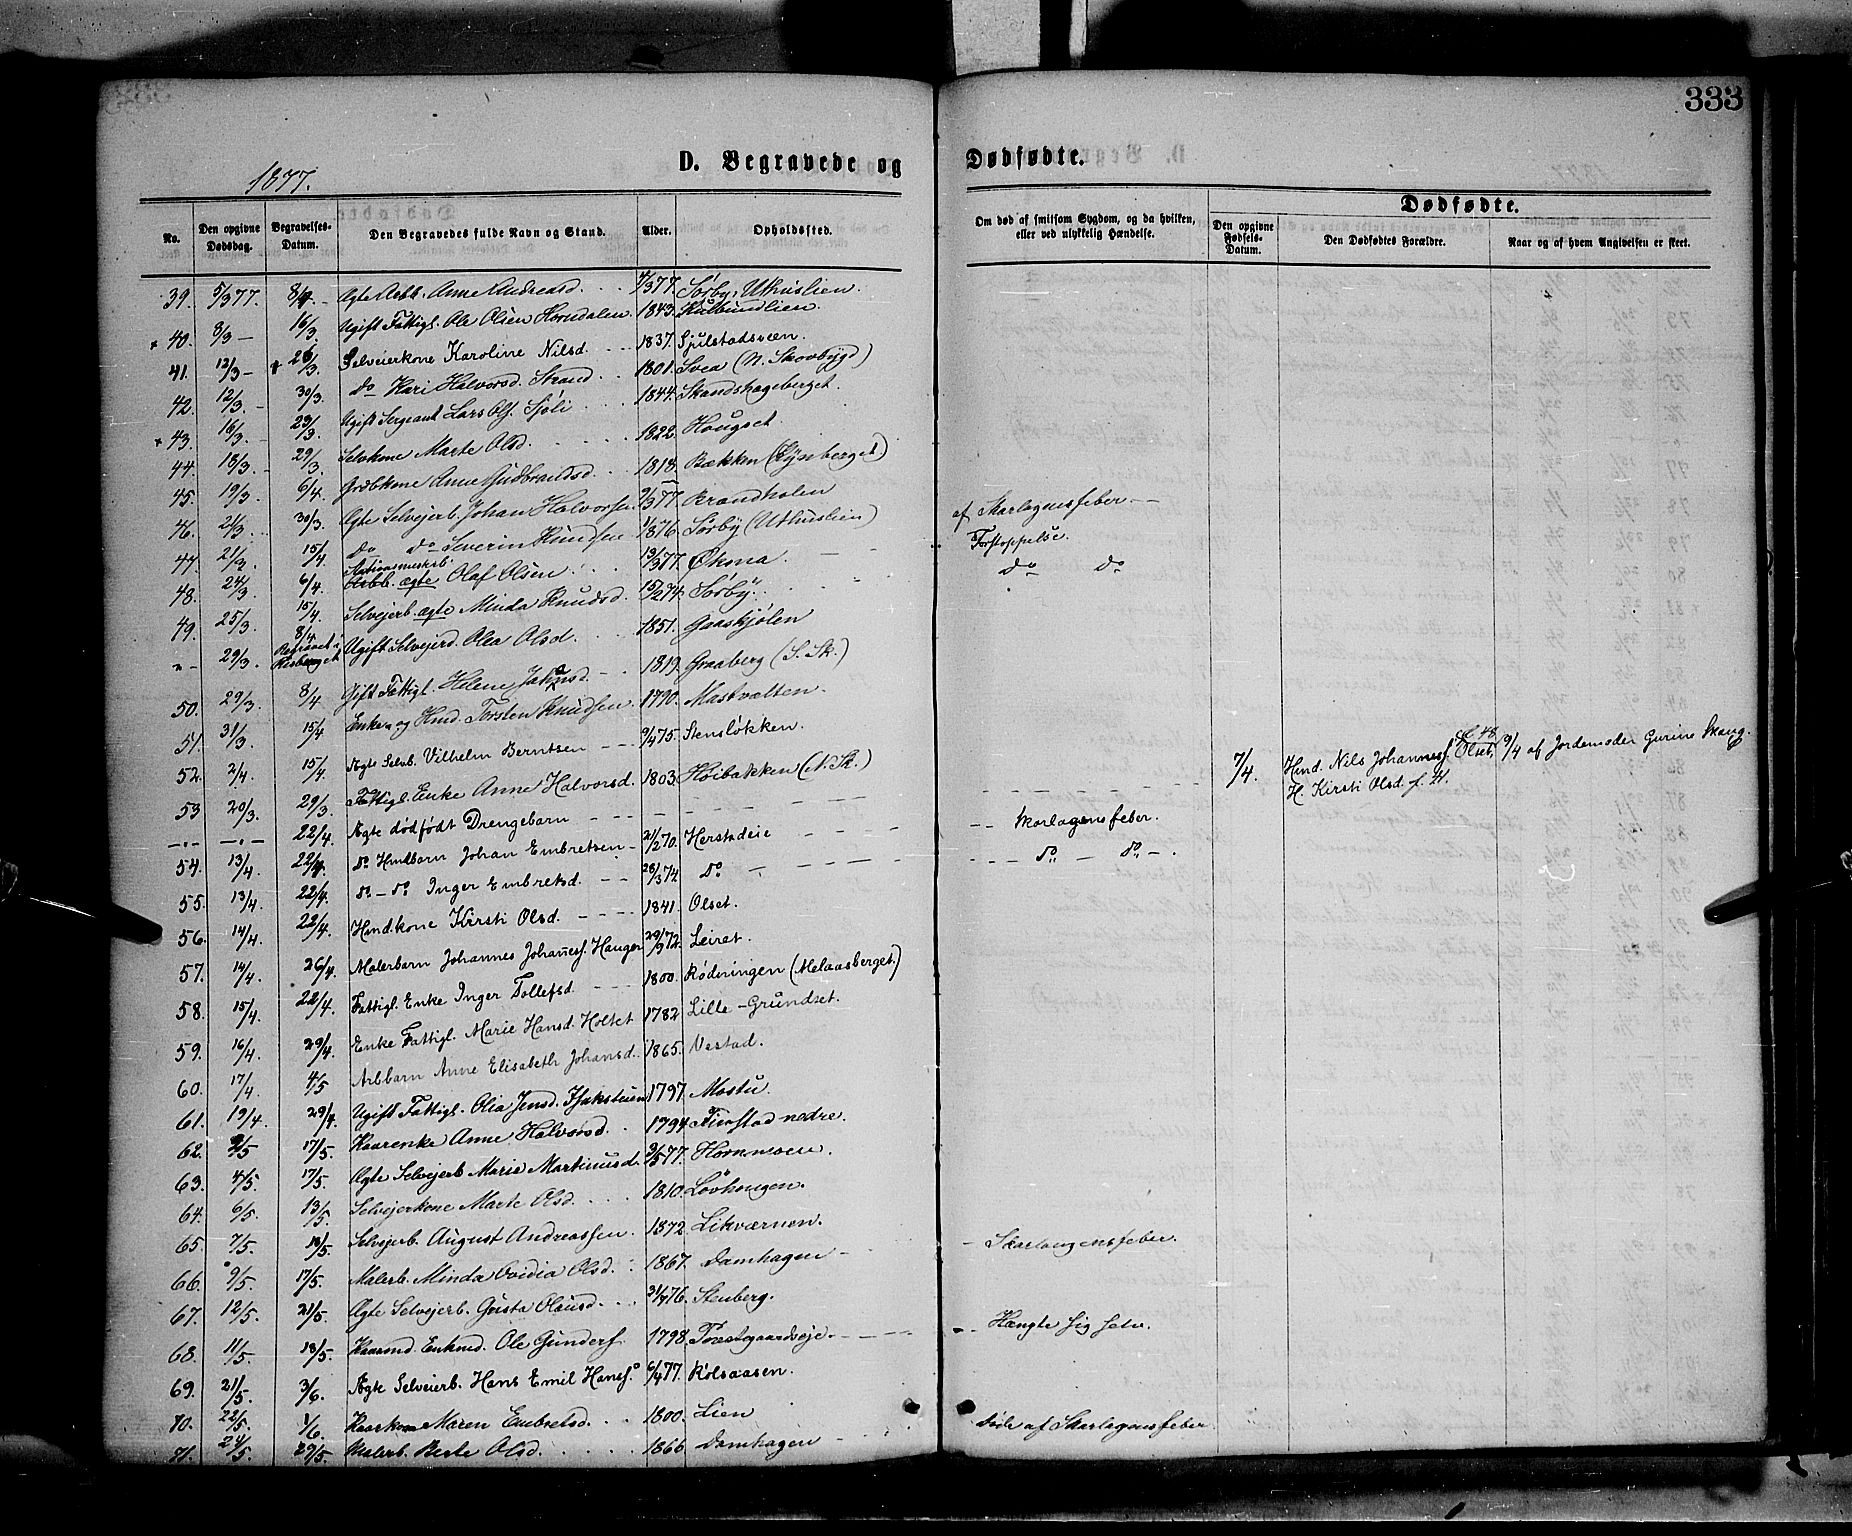 333
D. Begravede og Dødfødte.
1877.
No. | Den opgivne Dødsdag. | Begravelses-Datum. | Den Begravedes fulde Navn og Stand. | Alder. | Opholdssted. | Om død af smitsom Sygdom, og da hvilken, eller ved ulykkelig Hændelse. | Dødfødte. | Den opgivne Fødsels-Datum. | Den Dødfødtes Forældre. | Naar og af hvem Angivelsen er skeet.
39. 5/3 77. 8/4 - Ægte Arbb. Anne Andreasd. 4/3 77. Sørby, Uthuslien.
× 40. 8/3 - 16/3. Ugift Fattigl. Ole Olsen Horndalen 1843. Kulbundlien.
41. 12/3 - 26/3. Selveierkone Karoline Nilsd. 1837. Spilstadsvæen.
42. 12/3. - 30/3. do Kari Halvorsd. Strand 1801. Svea (N. Skovbygd)
× 43. 16/3. - 23/3. Ugift Sergeant Lars Ols. Sjøli 1844. Skandshageberget.
44. 18/3. - 29/3. Selvkone Marte Olsd. 1822. Hougset
45. 19/3. 6/4. Grdbkone Anne Gudbrandsd. 1818. Bækken (Lysberget)
46. 21/3. 30/3. Ægte Selvejerb. Johan Halvorsen 9/3 77. Brandholen af Skarlagensfeber
47. 21/3. 15/4. do do Severin Knudsen 1/8 76. Sørby (Uthuslien) Forstoppelse.
48. 24/3. 6/4. Stationsmesterb. ægte Olaf Olsen 13/1 77. Øksna do do
49. 25/3. 15/4. Selvejerb. ægte Minda Knudsd. 15/2 74. Sørby
"- 29/3. 8/4. Begravet i Risberget Ugift Selvejerd. Olea Olsd. 1851. Gaaskjølen
50. 29/3. 8/4. Gift Fattigl. Helene Jakobsd. 1819. Graaberg (S. Sk.)
51. 31/3. 15/4 Enkem. og Hmd. Torsten Knudsen 1790. Mastvolten.
52. 2/4. 15/4. Ægte Selvb. Vilhelm Berntsen 9/4 75. Stensløkken.
53 20/3. 29/3. Fattigl. Enke Anne Halvorsd. 1803. Høibakken (N. Sk.)
-"- -"- 22/4. Ægte dødfødt Drengebarn 7/4. Hmd. Nils Johannesf. Olset, f. 48. H. Kirsti Olsd. f. 41. 9/4 af Jordemoder Gurine Skaug.
54. 13/4. 22/4. do Hmdbarn Johan Embretsen 21/2 70. Herstadeie Skarlagensfeber.
55. 13/4. 22/4. do - do Inger Embretsd. 28/3 74. do do - do -.
56. 14/4. 22/4. Hmdkone Kirsti Olsd. 1841. Olset.
57. 14/4. 26/4. Malerbarn Johannes Johanesf. Hauger 29/9 72. Leiret.
58. 15/4. 22/4. Fattigl. Enke Inger Tollefsd. 1800. Rødningen (Melaasberget.)
59. 16/4. 29/4. Enke Fattigl. Marie Hansd. Holtet 1782 Lille-Grundset.
60. 17/4. 4/5 Arbbarn Anne Elisabeth Johansd. 1865. Vestad.
61. 19/4. 29/4. Ugift Fattigl. Olia Jensd. 1797. Mostu
62. 2/5 17/5. Kaarenke Anne Halvorsd. 1794. Finstad nedre.
63. 4/5. 17/5. Ægte Selvejerb. Marie Martinusd. 3/5 77. Hornmoen.
64. 6/5. 13/5. Selvejerkone Marte Olsd. 1810. Løvhaugen.
65. 7/5. 18/5. Selvejerb. August Andreassen. 1872. Likværnen.
66. 9/5. 17/5. Malerb. Minda Ovidia Olsd. 1867. Damhagen Skarlagensfeber.
67. 12/5. 21/5. Ægte Selvejerb. Gusta Olausd. 31/7 76. Stenberg.
68. 11/5. 18/5. Kaarmd. Enkmd. Ole Gunderf. 1798. Præstgaardseje. Hængte sig selv.
69. 21/5. 3/6. Ægte Selveierb. Hans Emil Hansf. 6/4 77. Kølsaasen.
70. 22/5. 1/6. Kaarkone Maren Embretsd. 1800. Lien
71. 24/5. 29/5. Malerb. Berte Olsd. 1866. Damhagen døde af Skarlagensfeber